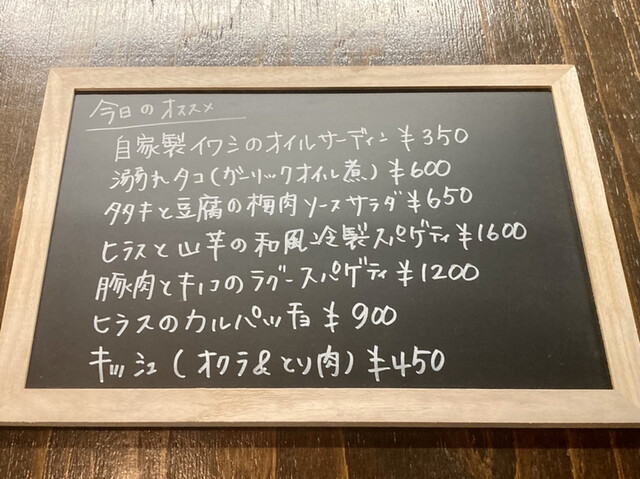 今日のオススメ
自家製イワシのオイルサーディン ¥350
溺れタコ(ガーリックオイル煮) ¥600
タタキと豆腐の梅肉ソースサラダ ¥650
ヒラスと山芋の和風冷製スパゲティ ¥1600
豚肉とキノコのラグースパゲティ ¥1200
ヒラスのカルパッチョ ¥900
キッシュ(オクラ&とり肉) ¥450